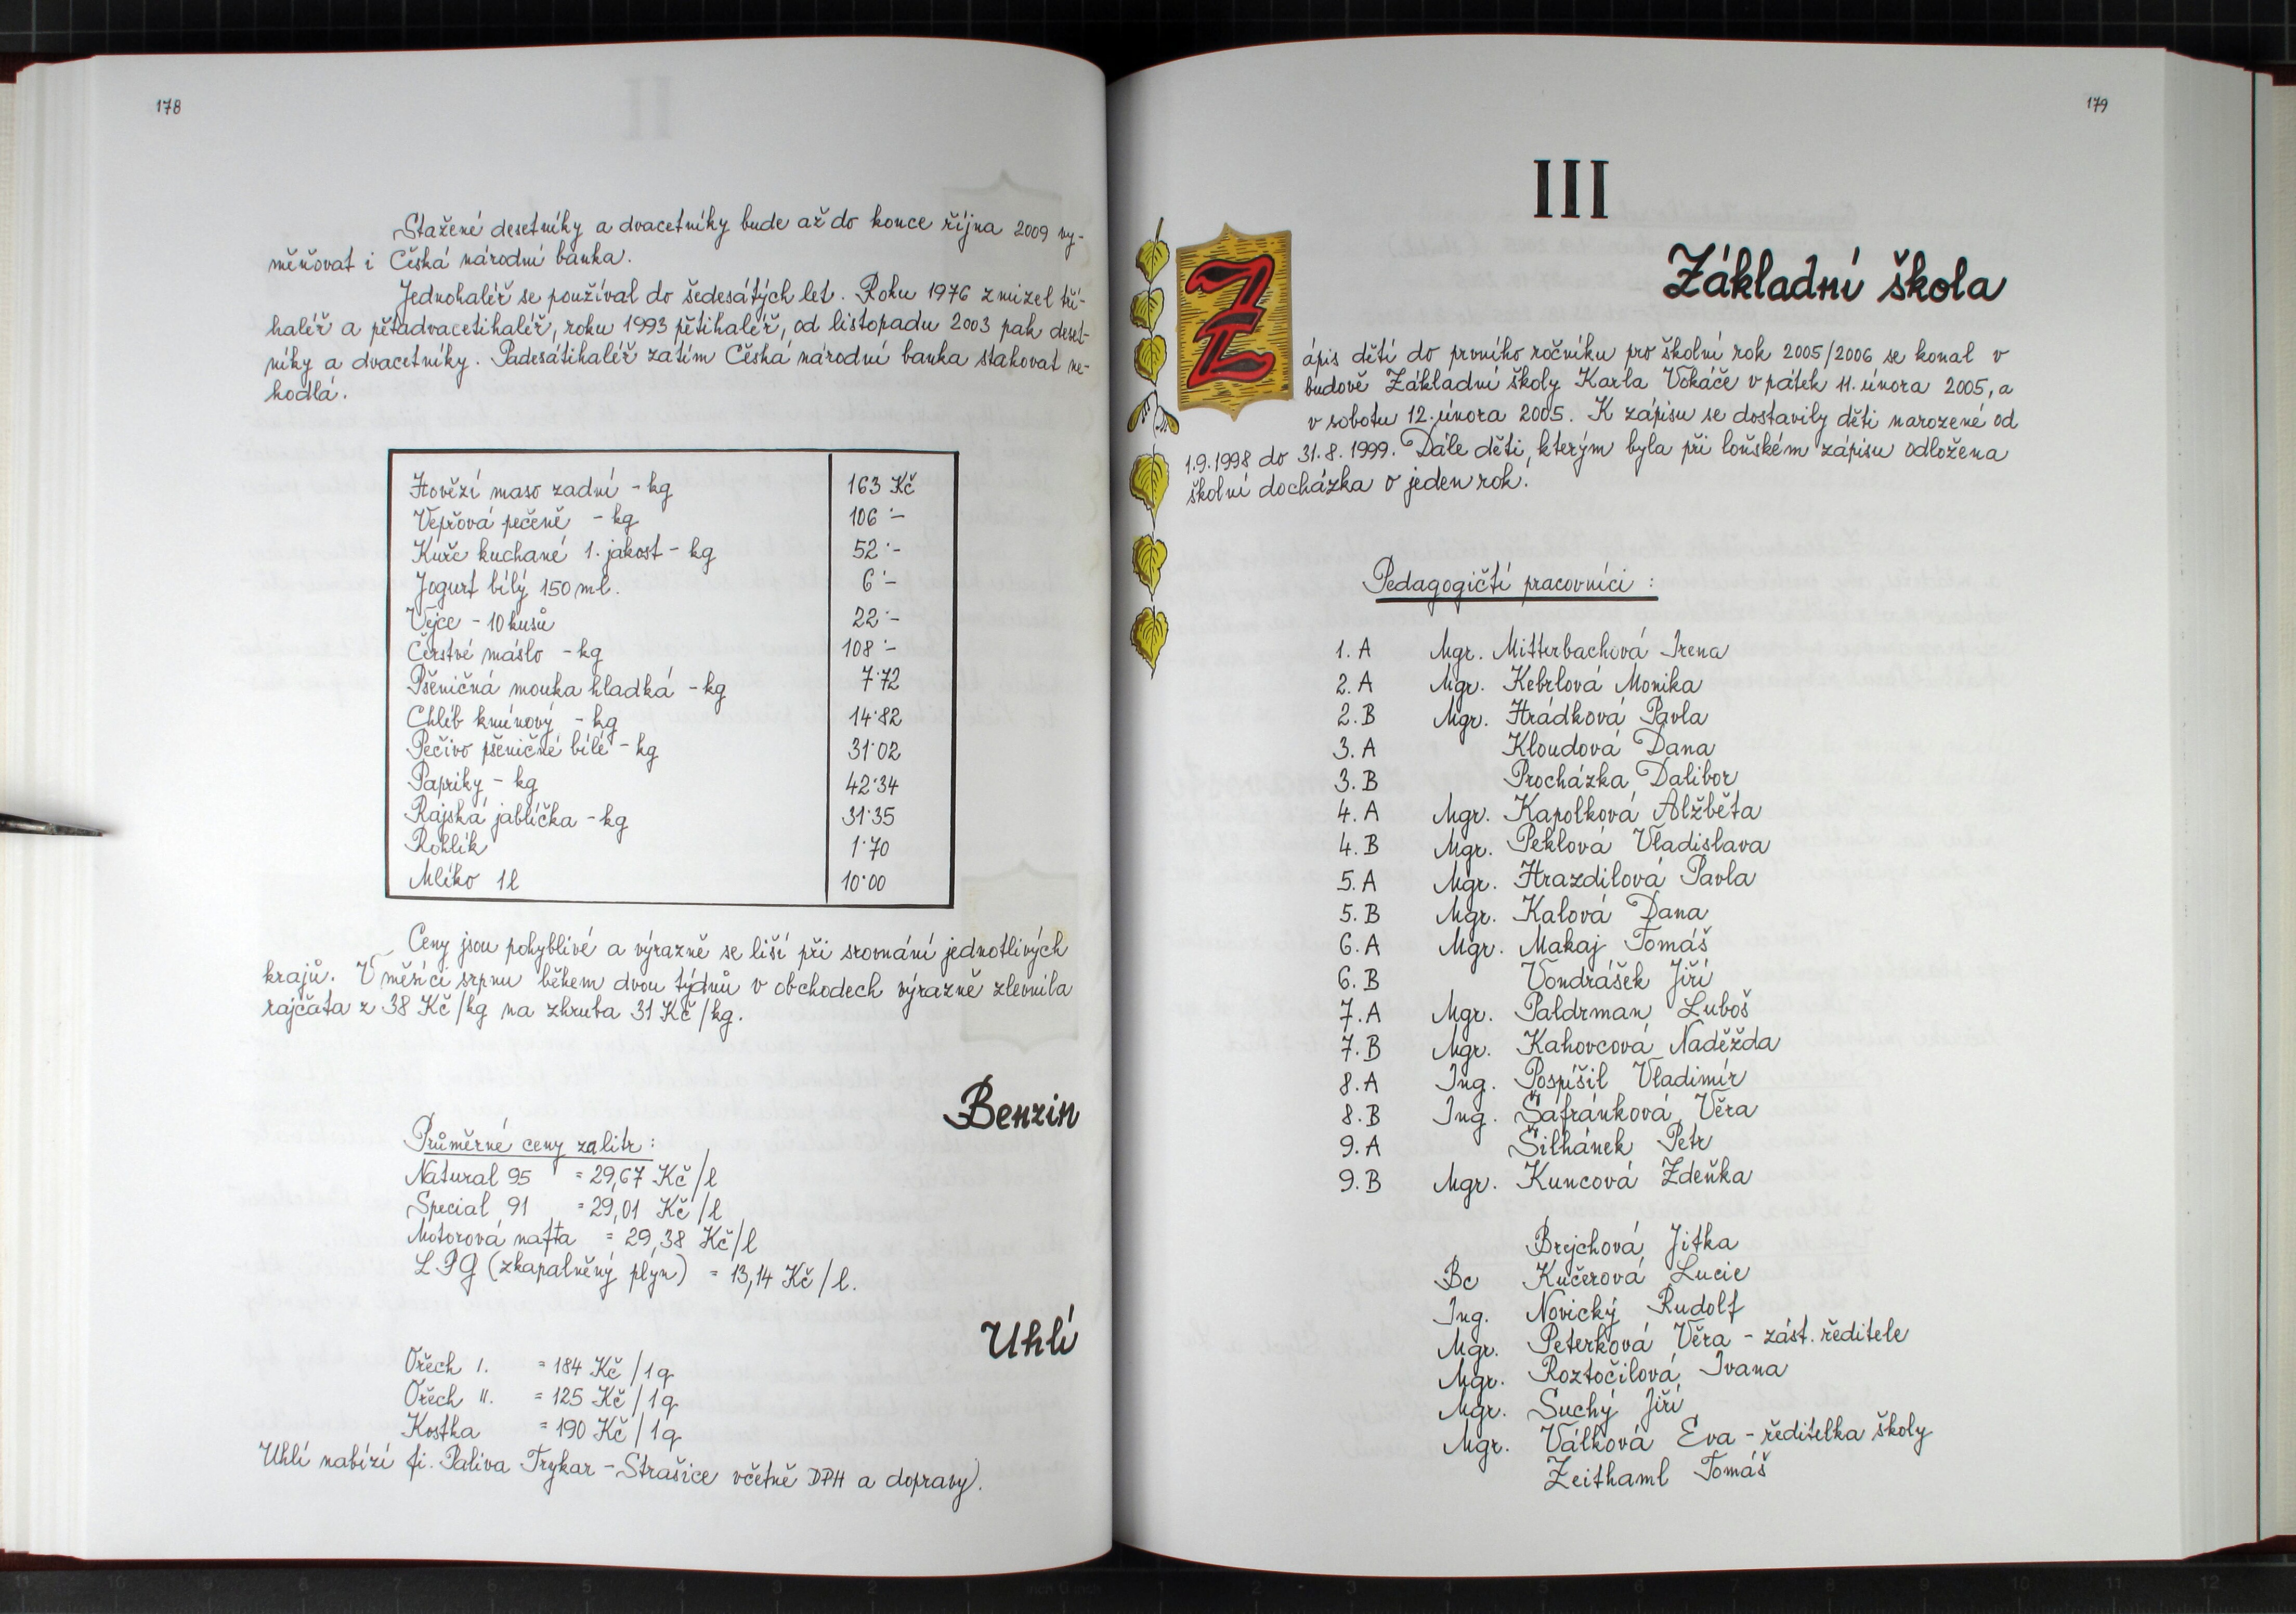 178
Stažené desetníky a dvacetníky bude až do konce října 2009 vy-
měňovat i Česká národní banka.
Jednohaléř se používal do šedesátých let. Roku 1976 zmizel tří-
haléř a pětadvacetihaléř, roku 1993 pětihaléř, od listopadu 2003 pak deset-
níky a dvacetníky. Padesátihaléř zatím Česká národní banka stahovat ne-
hodlá.
Hovězí maso zadní - kg 163 Kč
Vepřová pečeně - kg 106˙-
Kuře kuchané 1. jakost - kg 52˙-
Jogurt bílý 150 ml. 6˙-
Vejce - 10 kusů 22˙-
Čerstvé máslo - kg 108˙-
Pšeničná mouka hladká - kg 7˙72
Chléb kmínový - kg 14˙82
Pečivo pšeničné bílé - kg 31˙02
Papriky - kg 42˙34
Rajská jablíčka - kg 31˙35
Rohlík 1˙70
Mléko 1l 10˙00
Ceny jsou pohyblivé a výrazně se liší při srovnání jednotlivých
krajů. V měsíci srpnu během dvou týdnů v obchodech výrazně zlevnila
rajčata z 38 Kč/kg na zhruba 31 Kč/kg.
Benzin
Průměrné ceny za litr:
Natural 95 = 29,67 Kč/l
Special 91 = 29,01 Kč/l
Motorová nafta = 29,38 Kč/l
LPG (zkapalněný plyn) = 13,14 Kč/l.
Uhlí
Ořech I. = 184 Kč/1q
Ořech II. = 125 Kč/1q
Kostka = 190 Kč/1q
Uhlí nabízí fi. Paliva Trykar - Strašice včetně DPH a dopravy).
179
III
Základní škola
Zápis dětí do prvního ročníku pro školní rok 2005/2006 se konal v
budově Základní školy Karla Vokáče v pátek 11. února 2005, a
v sobotu 12. února 2005. K zápisu se dostavily děti narozené od
1.9.1998 do 31.8.1999. Dále děti, kterým byla při loňském zápisu odložena
školní docházka o jeden rok.
Pedagogičtí pracovníci :
1. A Mgr. Mitterbachová Irena
2. A Mgr. Kebrlová Monika
2. B Mgr. Hrádková Pavla
3. A Kloudová Dana
3. B Procházka Dalibor
4. A Mgr. Kapolková Alžběta
4. B Mgr. Peklová Vladislava
5. A Mgr. Hrazdilová Pavla
5. B Mgr. Kalová Dana
6. A Mgr. Makaj Tomáš
6. B Vondrášek Jiří
7. A Mgr. Paldrman Luboš
7. B Mgr. Kahovcová Naděžda
8. A Ing. Pospíšil Vladimír
8. B Ing. Šafránková Věra
9. A Šilhánek Petr
9. B Mgr. Kuncová Zdeňka
Brejchová Jitka
Bc Kučerová Lucie
Ing. Novický Rudolf
Mgr. Peterková Věra - zást. ředitele
Mgr. Roztočilová Ivana
Mgr. Suchý Jiří
Mgr. Válková Eva - ředitelka školy
Zeithaml Tomáš